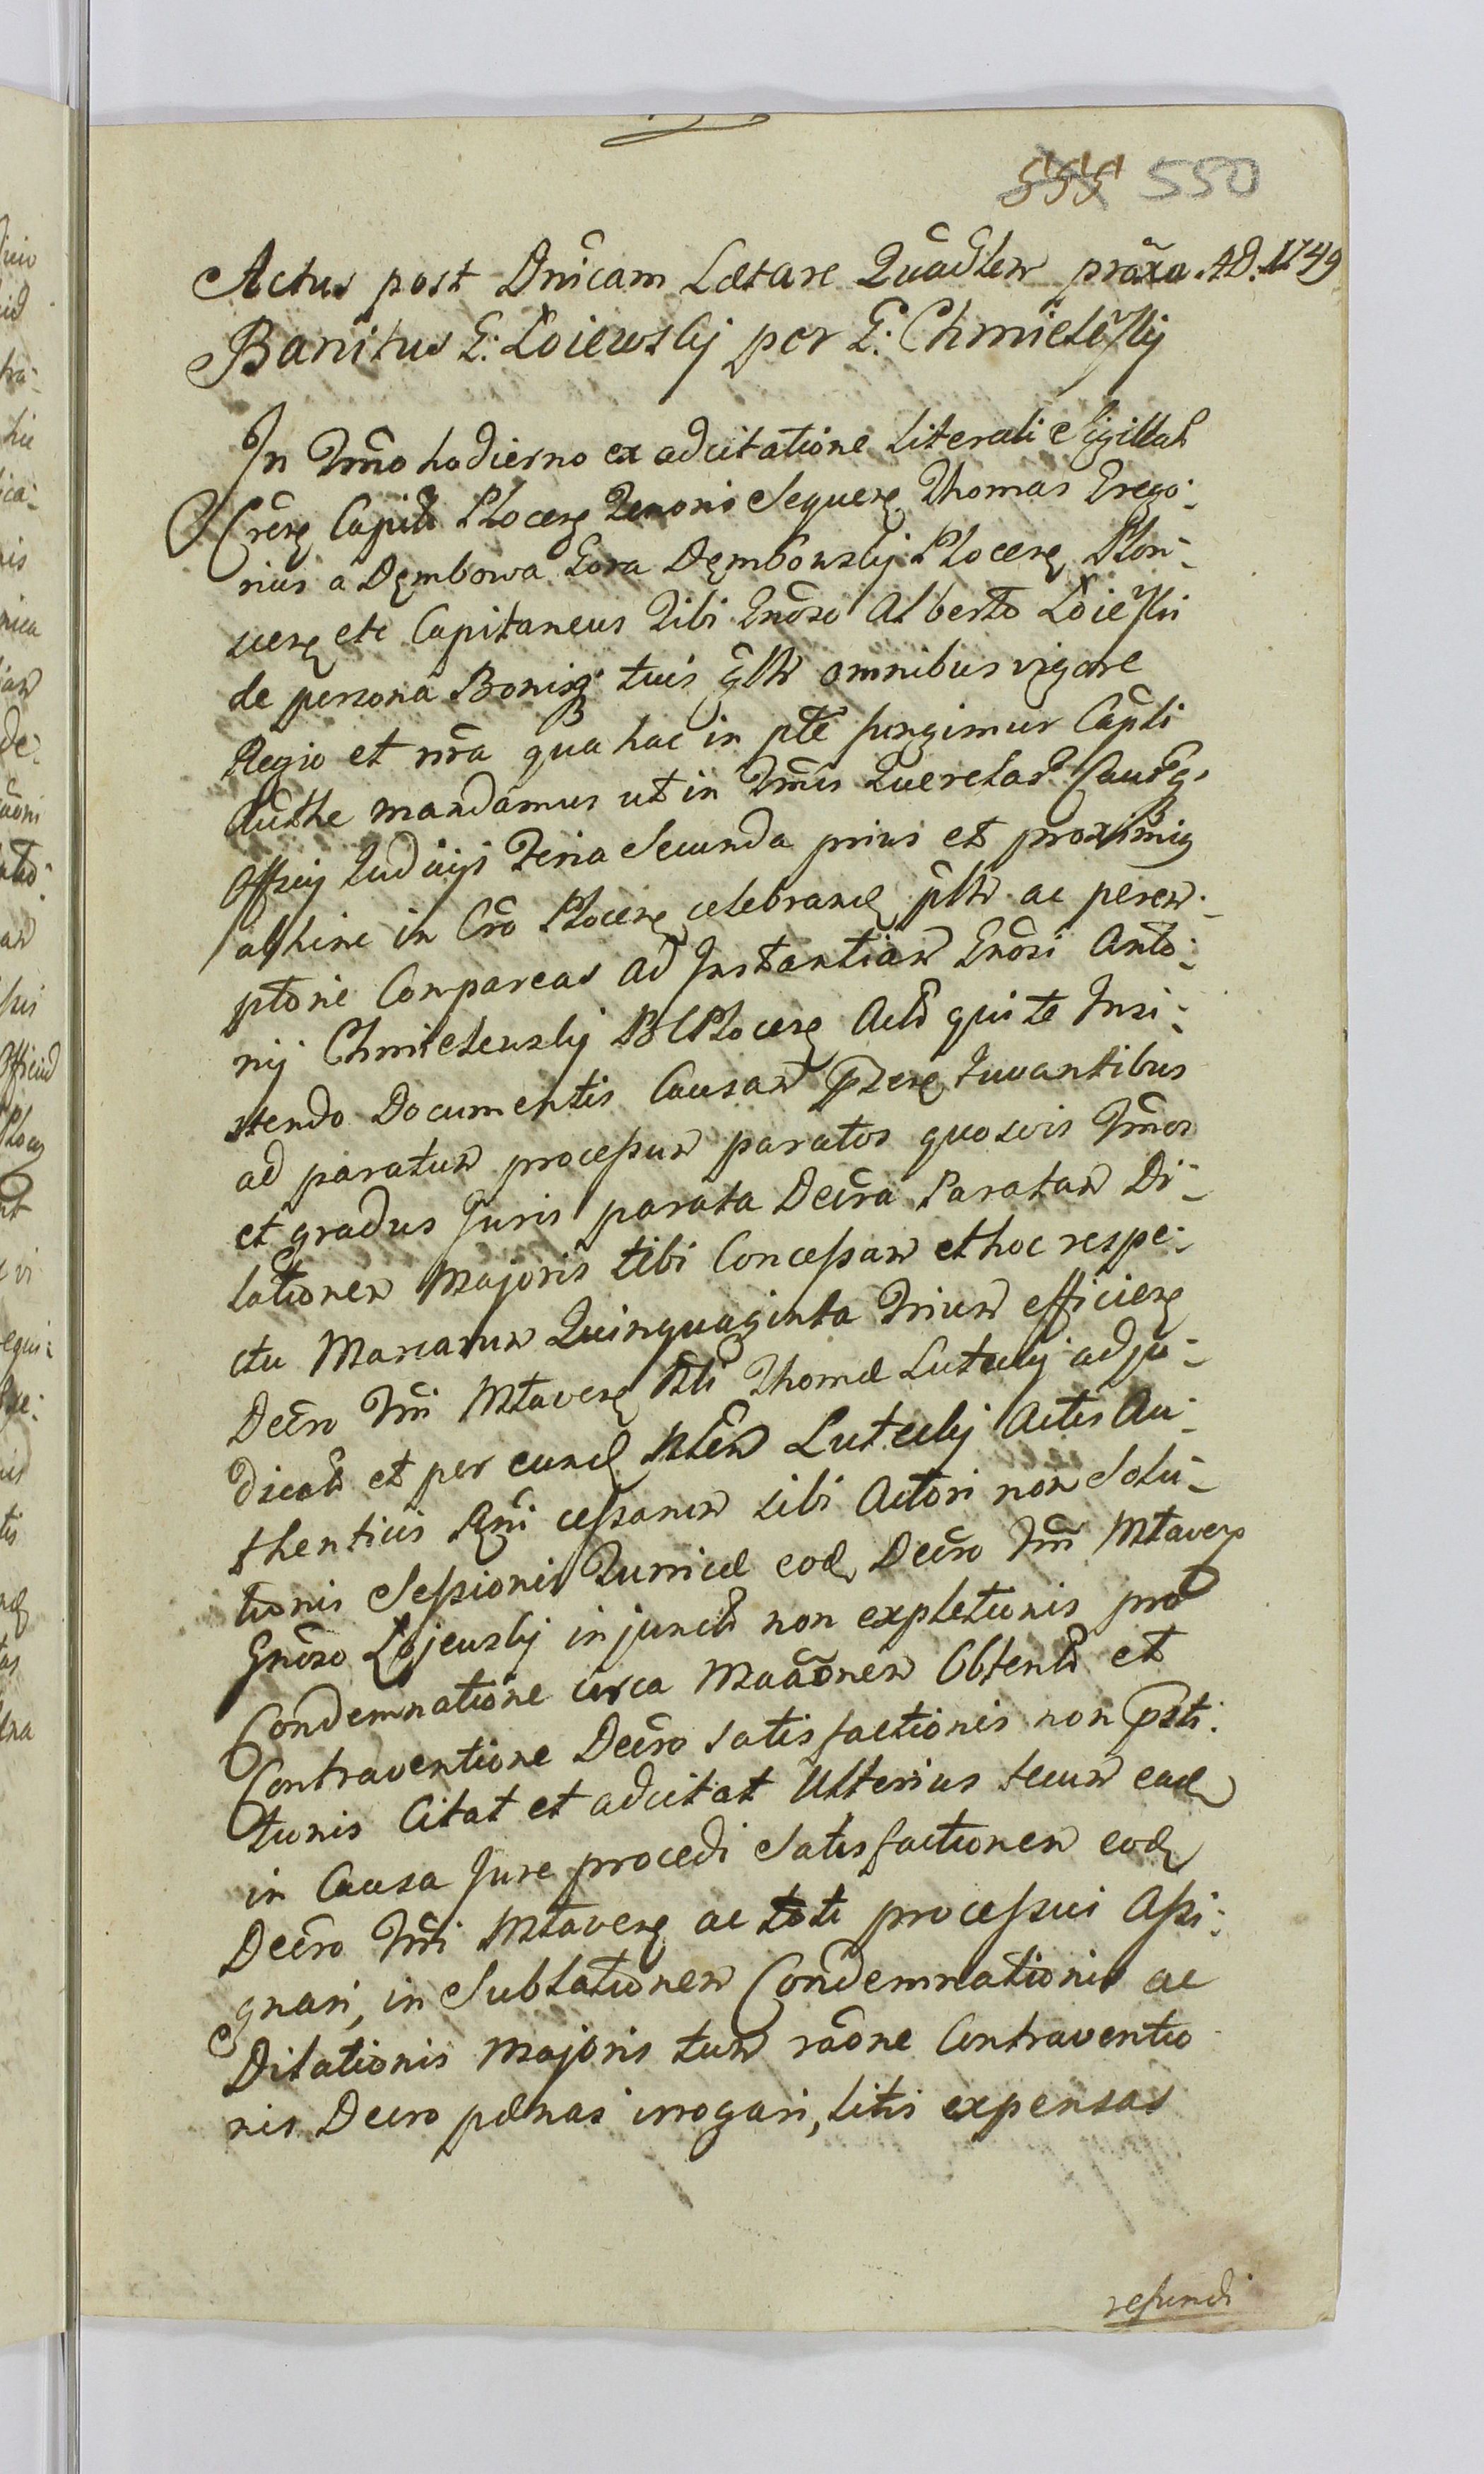 555 550
Actus post Dnicam Laetare Quadlem proxa. AD. 1749
Banitus G. Łoiewskij per G. Chmielewskij
In Trno hodierno ex adcitatione Literali Sigillat
Crens Capit Plocens Tenoris Sequens Thomas Grego-
rius a Dęmbowa Gora Dęmbowskij Plocens Plon-
scens etc Capitaneus Tibi Gnoso Alberto Łoiewski
de persona Bonisq tuis gnlr omnibus vigore
Regio et nra qua hac in pte fungimur Capli
Autthe mandamus ut in Trnis Querelar Causq
Officij Judicijs Feria Secunda prius et proximis
abhinc in Cro Plocens celebrand pnlr ac perem-
ptorie Compareas ad Instantiam Gnosi Anto-
nij Chmielewskij BCPlocens Act qui te Insi-
stendo Documentis Causam Pzens Juvantibus
ad paratum processum paratos quosvis Trnos
et gradus Juris parata Decra Paratam Di-
lationem Majoris tibi Concessam et hoc respe-
ctu Marcarum Quinquaginta Trium efficiens
Decro Trni Mlavens Thomae Luteckij adju-
dicat et per eund Luteckij Actis Au-
thenticis cessarum sibi Actori non Solu-
tionis Sessionis Turris eod Decro Trni Mlavens
Gnoso Łojewskij injunct non expletionis pro
Condemnatione circa Obtent et
Contraventione Decro satisfactionis non psti-
tionis Citat et adcitat Ulterius tecum ead
in Causa Jure procedi Satisfactionem eod
Decro Trni Mlavens ac toti processui Assi-
gnari, in Sublationem Condemnationis ac
Dilationis Majoris tum raone Contraventio
nis Decro paenas irrogari, litis expensas
refundi